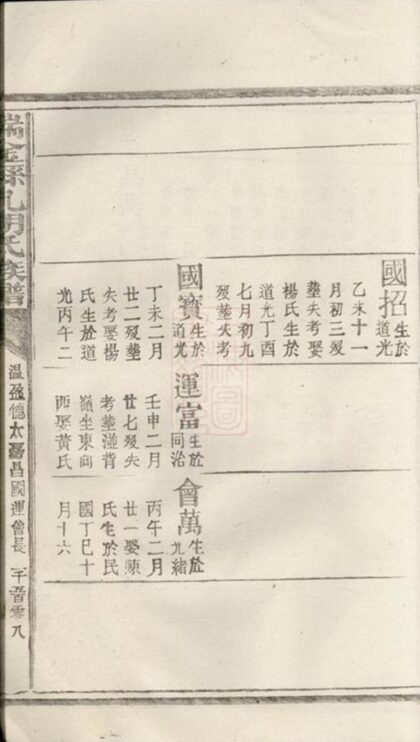 國招生於道光
乙未十一
月初三歿
塟失考娶
楊氏生於
道光丁酉
七月初九
歿塟失考
國寶生於道光
丁未二月
廿二歿塟
失考娶楊
氏生於道
光丙午二
運富生於同治
壬申二月
廿七歿失
考塟湴背
嶺坐東向
西娶黃氏
會萬生於光緒
丙午二月
廿一娶陳
氏生於民
國丁巳十
月十六
瑞金孫孔胡氏族譜
溫盈德太嘉昌國運會長